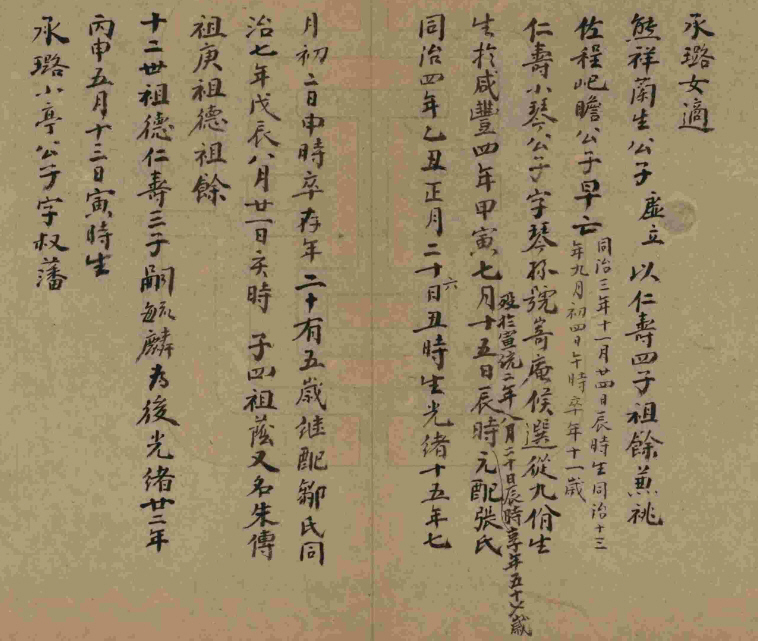 承璐女適
熊祥蘭生公子 虛立 以仁壽四子祖餘兼祧
佐程屺瞻公子早亡
同治三年十一月廿四日辰時生同治十三
年九月初四日午時卒年十一歲
仁壽小琴公子字琴孫號嵜庵候選從九佾生
生於咸豐四年甲寅七月十五日辰時元配張氏
歿於宣統二年八月二十日辰時享年五十七歲
同治四年乙丑正月二十六日丑時生光緒十五年七
月初二日申時卒存年二十有五歲継配鄒氏同
治七年戊辰八月廿一日亥時 子四祖蔭又名朱傳
祖庚祖德祖餘
十二世祖德仁壽三子嗣毓麟為後光緒廿二年
丙申五月十三日寅時生
承璐小亭公子字叔藩